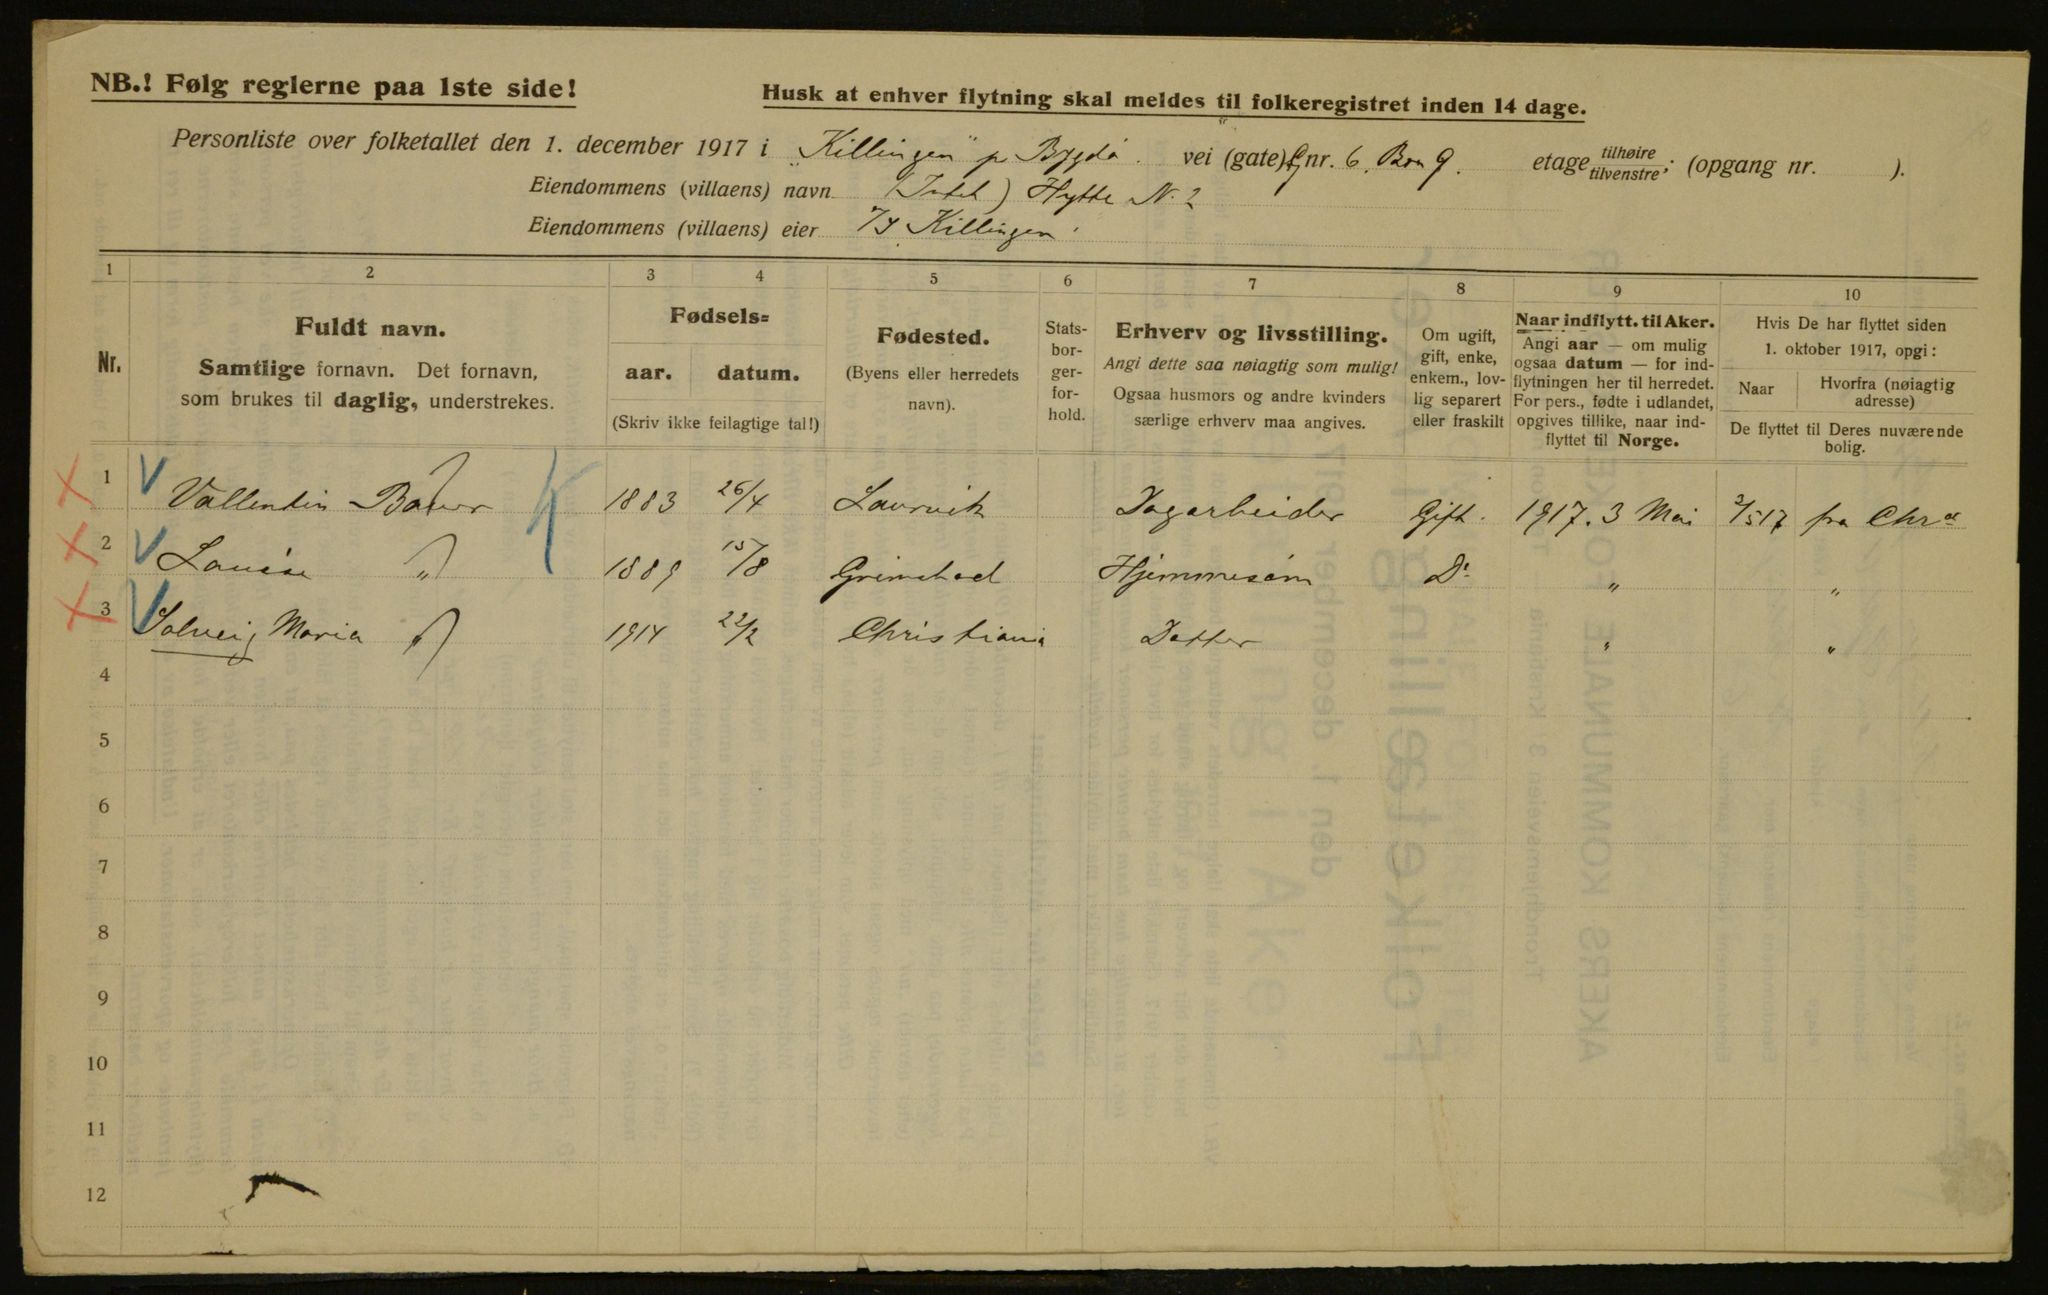 NB.! Følg reglerne paa 1ste side!
Husk at enhver flytning skal meldes til folkeregistret inden 14 dage.
Personliste over folketallet den 1. december 1917 i „Killingen" pr Bygdø. vei (gate) Gnr. 6. Bnr 9. etage tilhøire tilvenstre; (opgang nr. ).
Eiendommens (villaens) navn (Intet) Hytte N. 2
Eiendommens (villaens) eier Killingen
1 2 3 4 5 6 7 8 9 10
Nr.
Fuldt navn.
Samtlige fornavn. Det fornavn,
som brukes til daglig, understrekes.
Fødsels=
aar. datum.
(Skriv ikke feilagtige tal!)
Fødested.
(Byens eller herredets
navn).
Stats-
bor-
ger-
for-
hold.
Erhverv og livsstilling.
Angi dette saa nøiagtig som mulig!
Ogsaa husmors og andre kvinders
særlige erhverv maa angives.
Om ugift,
gift, enke,
enkem., lov-
lig separert
eller fraskilt
Naar indflytt. til Aker.
Angi aar — om mulig
ogsaa datum — for ind-
flytningen her til herredet.
For pers., fødte i udlandet,
opgives tillike, naar ind-
flyttet til Norge.
Hvis De har flyttet siden
1. oktober 1917, opgi:
Naar
Hvorfra (nøiagtig
adresse)
De flyttet til Deres nuværende
bolig.
1 Vallentin Bauer 1883 26/4 Laurvik Dagarbeider Gift. 1917. 3 Mai 2/5 17 fra Chra
2 Louise „ 1889 15/8 Grimstad Hjemmesøm Do „ „
3 Solveig Maria „ 1914 22/2 Christiania Datter „ „
4
5
6
7
8
9
10
11
12